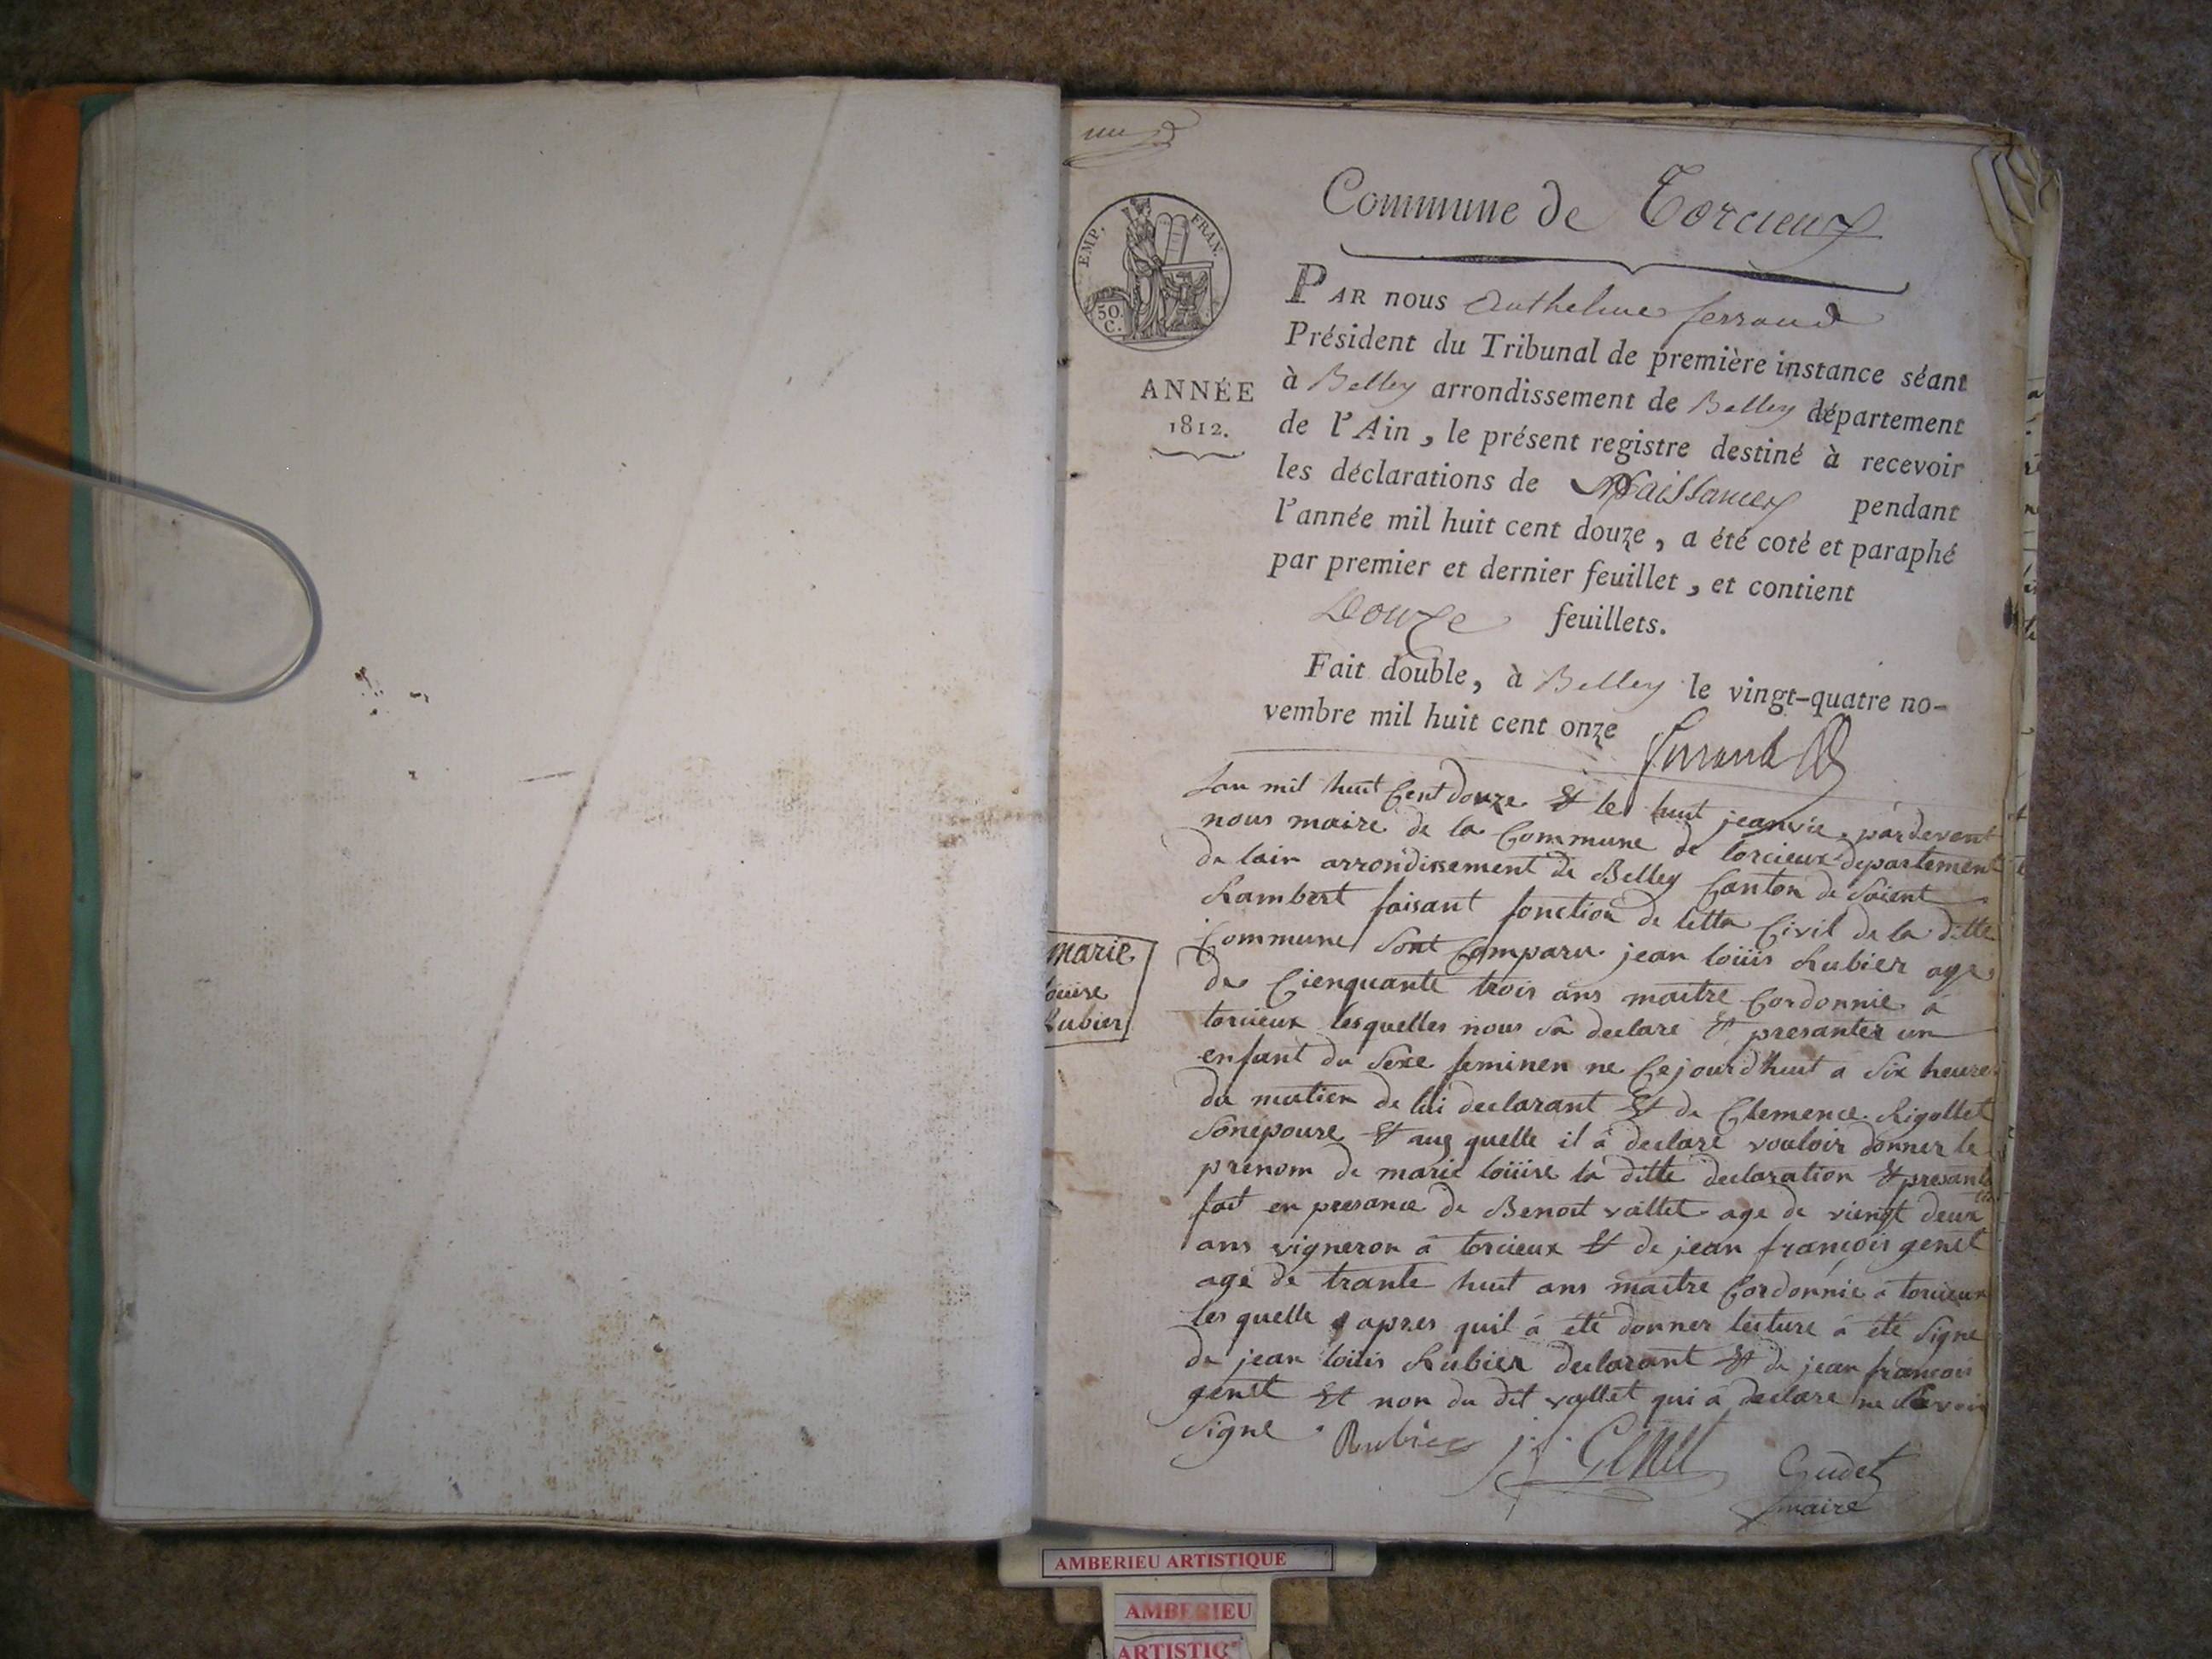 Commune de Torcieux
EMP. FRAN.
50.
C.
ANNÉE
1812.
PAR nous Anthelme ferrand
Président du Tribunal de première instance séant
à Belley arrondissement de Belley département
de l'Ain, le présent registre destiné à recevoir
les déclarations de Naissances pendant
l'année mil huit cent douze, a été coté et paraphé
par premier et dernier feuillet, et contient
Douze feuillets.
Fait double, à Belley le vingt-quatre no-
vembre mil huit cent onze
ferrand
marie
louise
Rubier
Lan mil huit Cent douze Et le huit jeanvie pardevent
nous maire de la Commune de torcieux departement
de lain arrondissement de Belley Canton de Saient
Rambert faisant fonction de letta Civil de la ditte
Commune Sont Comparu jean loüis Rubier age
de Cienquante trois ans maitre Cordonnie à
torcieux lesquelles nous à declare Et presanter un
enfant du Sexe feminen ne Cejourdhuit a Six heure
du matien de lui declarant Et de Clemence Rigollet
Sonepouse Et auquelle il à declare vouloir donner le
prenom de marie loüise la ditte declaration Et presante
fait en presance de Benoit vallet age de viengt deux
ans vigneron à torcieux Et de jean françois genet
age de trante huit ans maitre Cordonnie à torcieux
les quelle apres quil à été donner lecture à été Signe
de jean loüis Rubier declarant Et de jean francois
genet Et non du dit vallet qui à declare ne Savoir
Signe
Rubier j f Genet Gudet
maire
AMBERIEU ARTISTIQUE
AMBERIEU